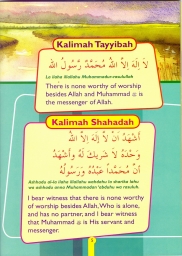 Kalimah Tayyibah
لَا إِلٰهَ إِلَّا اللهُ مُحَمَّدٌ رَّسُولُ اللهِ
La ilaha illallahu Muhammadur-rasulullah
There is none worthy of worship
besides Allah and Muhammad ﷺ is
the messenger of Allah.
Kalimah Shahadah
أَشْهَدُ أَنْ لَّا إِلٰهَ إِلَّا اللهُ
وَحْدَهُ لَا شَرِيْكَ لَهُ وَأَشْهَدُ
أَنَّ مُحَمَّدًا عَبْدُهُ وَرَسُولُهُ
Ashhadu al-la ilaha illallahu wahdahu la sharika lahu
wa ashhadu anna Muhammadan 'abduhu wa rasuluh
I bear witness that there is none worthy
of worship besides Allah, Who is alone,
and has no partner, and I bear witness
that Muhammad ﷺ is His servant and
messenger.